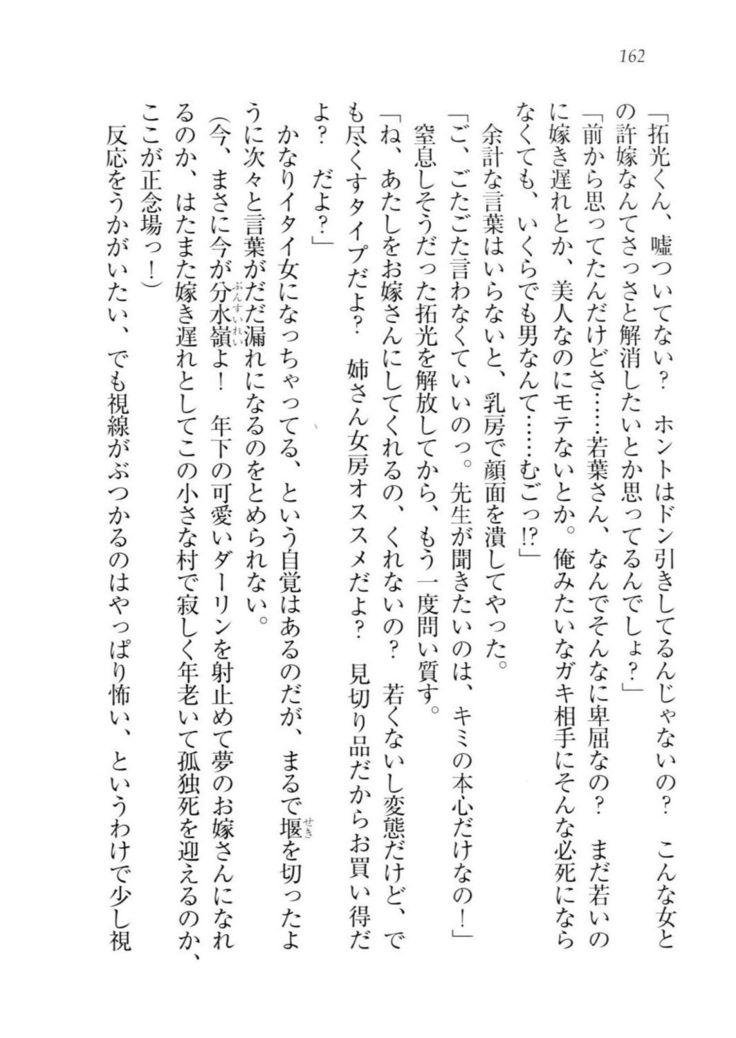 162
「拓光くん、嘘ついてない？　ホントはドン引きしてるんじゃないの？　こんな女と
の許嫁なんてさっさと解消したいとか思ってるんでしょ？」
「前から思ってたんだけどさ……若葉さん、なんでそんなに卑屈なの？　まだ若いの
に嫁き遅れとか、美人なのにモテないとか。俺みたいなガキ相手にそんな必死になら
なくても、いくらでも男なんて……むごっ!?」
　余計な言葉はいらないと、乳房で顔面を潰してやった。
「ご、ごたごた言わなくていいのっ。先生が聞きたいのは、キミの本心だけなの！」
　窒息しそうだった拓光を解放してから、もう一度問い質す。
「ね、あたしをお嫁さんにしてくれるの、くれないの？　若くないし変態だけど、で
も尽くすタイプだよ？　姉さん女房オススメだよ？　見切り品だからお買い得だ
よ？　だよ？」
　かなりイタイ女になっちゃってる、という自覚はあるのだが、まるで堰せきを切ったよ
うに次々と言葉がだだ漏れになるのをとめられない。
（今、まさに今が分水嶺ぶんすいれいよ！　年下の可愛いダーリンを射止めて夢のお嫁さんになれ
るのか、はたまた嫁き遅れとしてこの小さな村で寂しく年老いて孤独死を迎えるのか、
ここが正念場っ！）
　反応をうかがいたい、でも視線がぶつかるのはやっぱり怖い、というわけで少し視